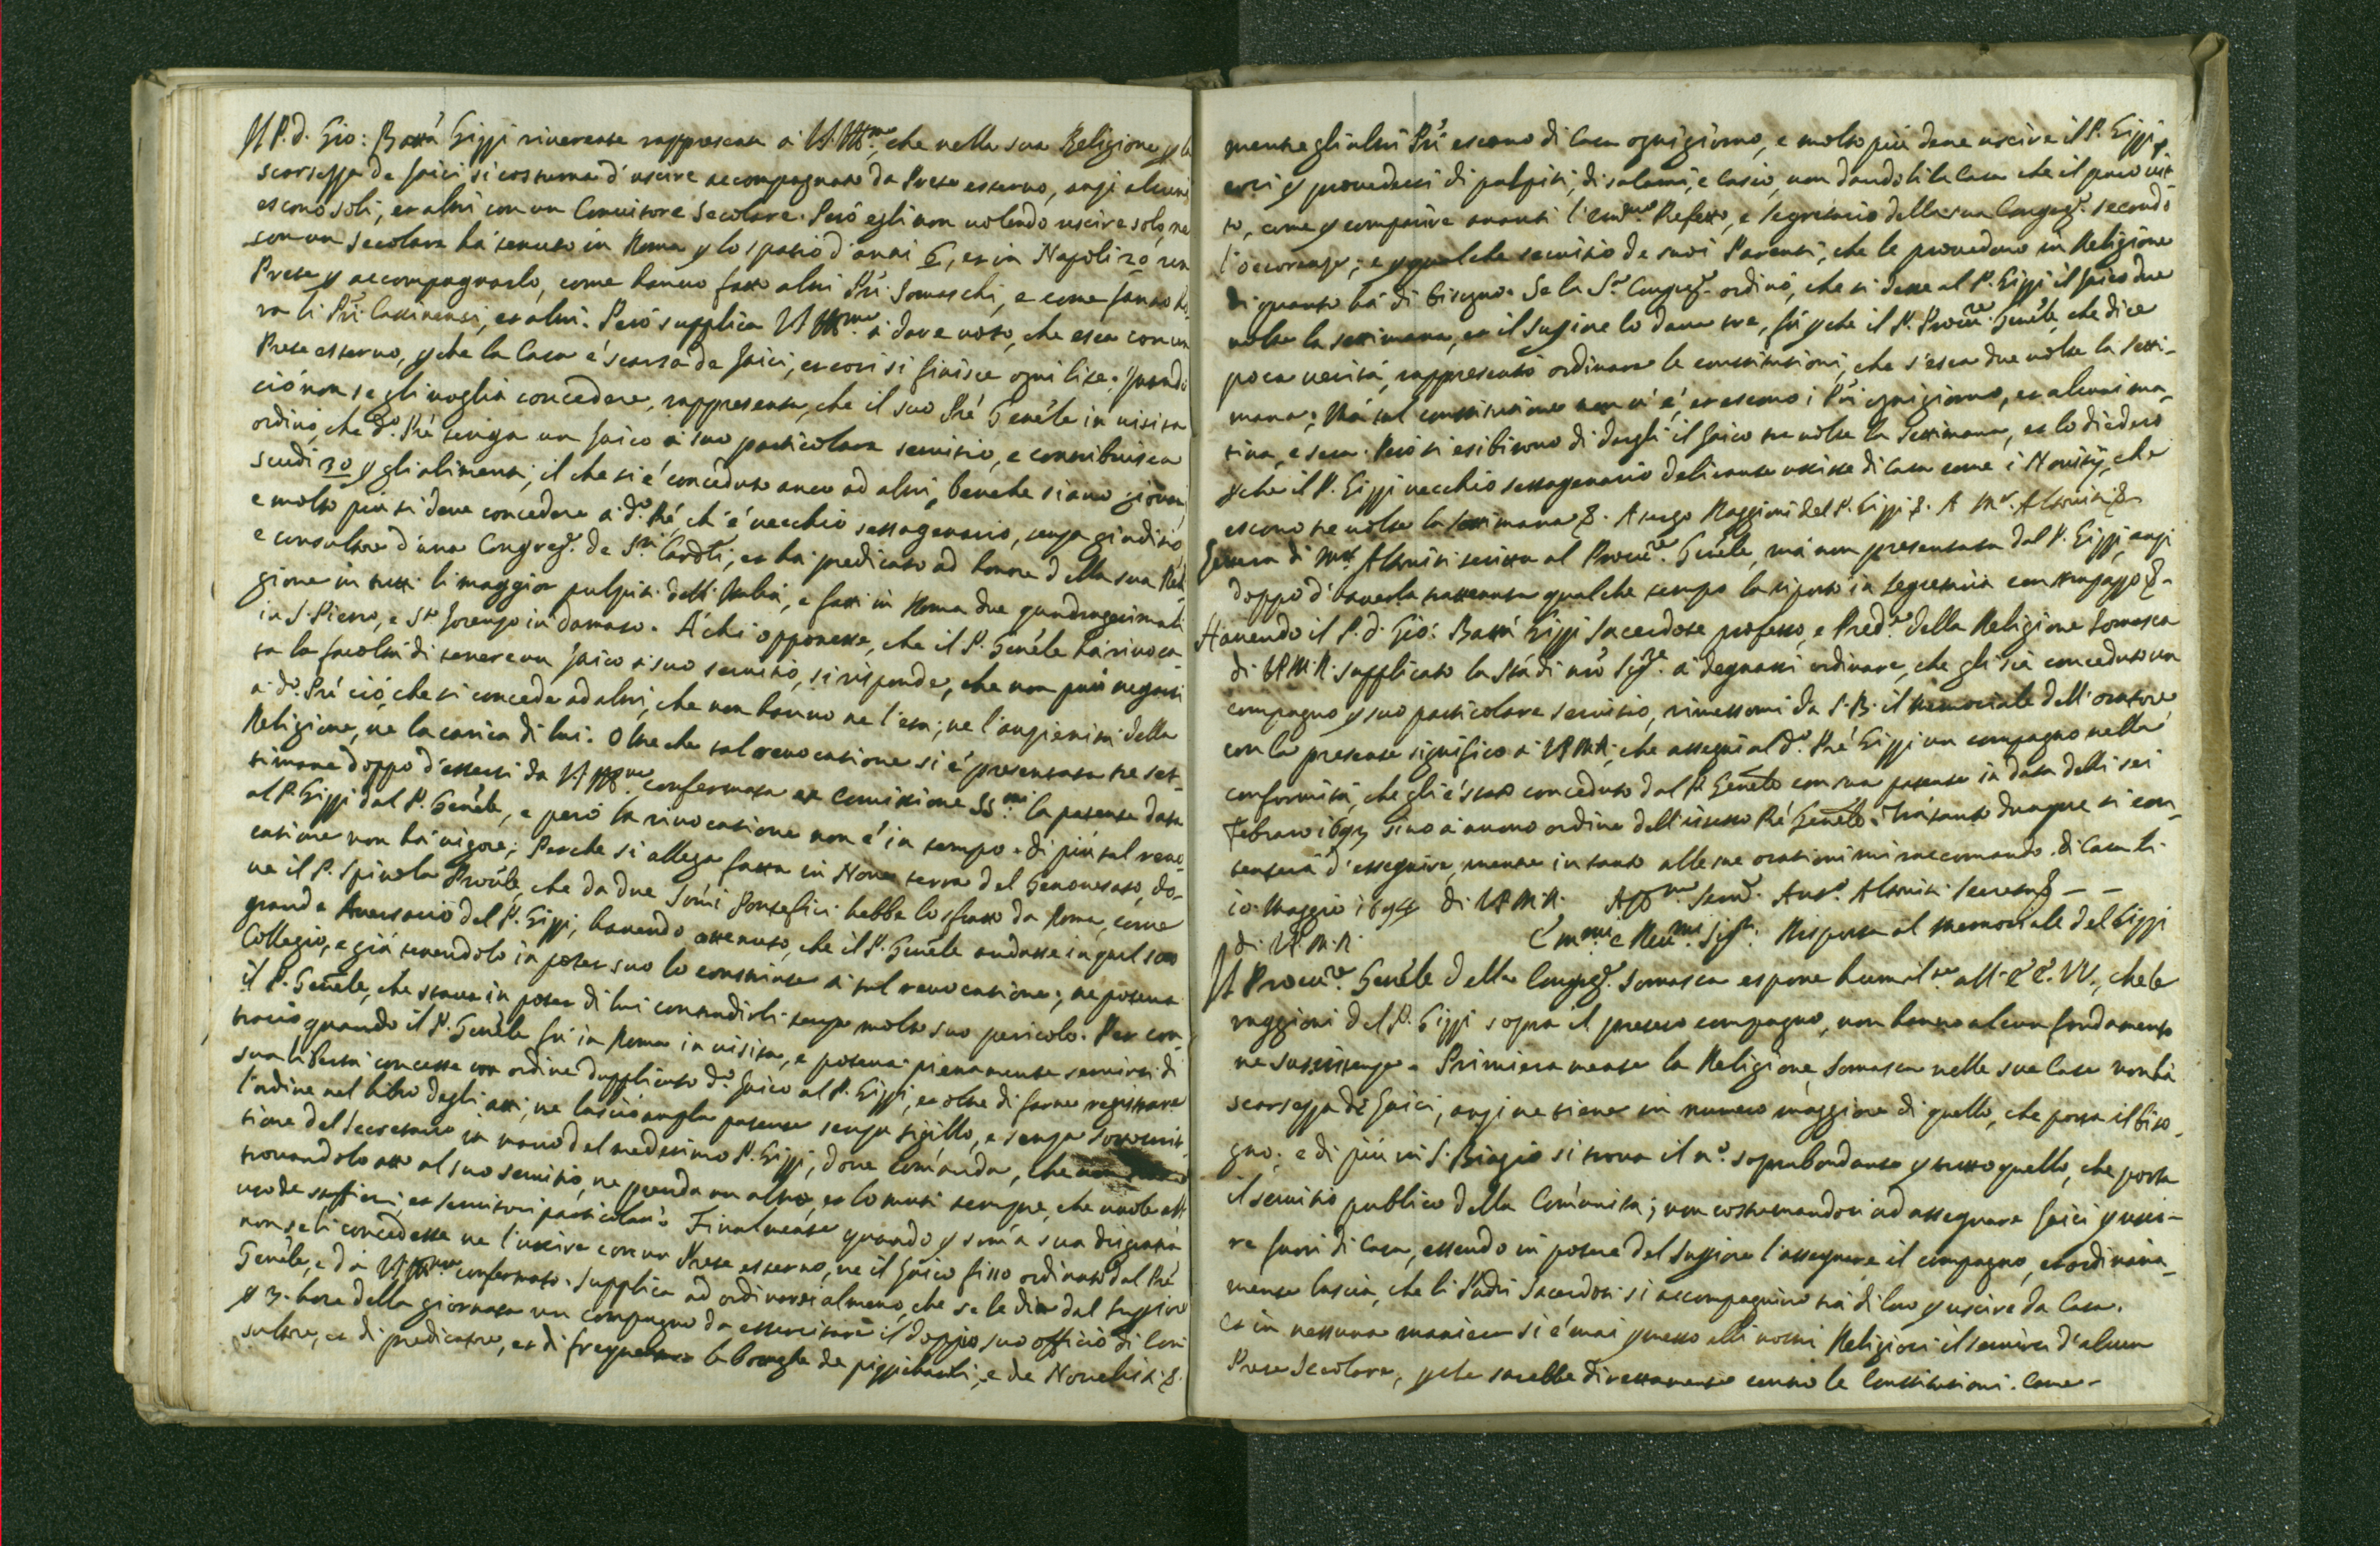 Il P. d. Gio: Battâ Gizzi riverente rappresenta à V. Ill.ma, che nella sua Religione p la
scarsezza de laici si costuma d'uscire accompagnato da Prete esterno, anzi alcuni
escono soli, et altri con un Convittore Secolare. Però egli non volendo uscire solo, ne
con un Secolare hà tenuto in Roma p lo spatio d'anni 6, et in Napoli 20 un
Prete p accompagnarlo, come hanno fatto altri Pri Somaschi, e come fanno ho
ra li Pri Cassinensi, et altri. Però supplica V. Ill.ma à dare voto, che esca con un
Prete esterno, p che la Casa è scarsa de laici, et così si finisce ogni lite. Quando
ciò non se gli voglia concedere, rappresenta, che il suo Prê Genêle in visita
ordinò, che d.o Prê tenga un laico à suo particolare servitio, e contribuisca
scudi 30 p gli alimenti; il che si è conceduto anco ad altri, benche siano giovani,
e molto più si deve concedere à d.o Prê, ch'è vecchio sessagenario,
e consultore d'una Congreg.e de S.ri Cardli, et hà predicato ad honore della sua Reli
gione in tutti li maggior pulpiti dell'Italia, e fatti in Roma due quadragesimali
in S. Pietro, e S.to Lorenzo in damaso. A' chi opponesse, che il P. Genêle hà rivoca
ta la facoltà di tenere un laico à suo servitio, si risponde, che non può negarsi
à d.o Prê ciò, che si concede ad altri, che non hanno ne l'età, ne l'anzianità della
Religione, ne la carica di lui. Oltre che tal revocatione si è presentata tre set-
timane doppo d'essersi da V. Ill.ma confermata ex Comissione SS.mi la patente data
al P. Gizzi dal P. Genêle, e però la rivocatione non è in tempo. di più tal revo
catione non hà vigore; Perche si allega fatta in Nove terra del Genovesato, do-
ve il P. Spinola Provle, che da due Sômi Pontefici hebbe lo sfratto da Roma, come
grande Aversario del P. Gizzi, havendo ottenuto, che il P. Genêle andasse in quel suo
Collegio, e già tenendolo in poter suo lo constrinse à tal revocatione; ne poteva
il P. Genêle, che stava in poter di lui contradirli senza molto suo pericolo. Per con
trario quando il P. Genêle fù in Roma in visita, e poteva pienamente servirsi di
sua libertà concesse con ordine dupplicato d.o laico al P. Gizzi, et oltre di farne registrare
l'ordine nel libro degli atti, ne lasciò ampla patente senza sigillo, e senza sottoscrit
tione del Secretario in mano del medesimo P. Gizzi, dove comânda, che non
trovandolo atto al suo servitio, ne prenda un altro, et lo muti sempre, che vuole
uso de staffieri, et servitori particolari. Finalmente quando p som̂a sua disgratia
non se li concedesse ne l'uscire con un Prete esterno, ne il laico fisso ordinato dal Prê
Genêle, e dà V. Ill.ma confermato. Supplica ad ordinarsi almeno, che se le dia dal Supiore
p 3. hore della giornata un compagno da essercitare il doppio suo officio di Con
sultore, et di predicatore, et di frequentare le botteghe de pizzicaroli, e de Novelisti &.
mentre gli altri Pri escono di Casa ogni giorno, e molto più deve uscire il P. Gizzi p
p provedersi di pulpiti, di salami, e Casio, non dandoli la Casa che il puro vit-
to, come p comparire avanti l'Em.mo Prefetto, e Segretario della sua Congreg.e secondo
l'occorenze; e p qualche servitio de suoi Parenti, che le provedono in Religione
di quanto hà di bisogno. Se la S.a Congreg.e ordinò, che si desse al P. Gizzi il laico due
volte la settimana, et il Supiore lo dava tre, fù p che il P. Procu.re Genêle, che dice
poca verità, rappresentò ordinare le constitutioni, che s'esca due volte la setti-
mana; Mà tal constitutione non vi è, et escono i Pri ogni giorno, et alcuni ma-
tina, e sera. Però si esibirono di dargli il laico tre volte la Settimana, et lo diedero
p che il P. Gizzi vecchio sessagenario delicante uscisse di Casa come i Novitij, che
escono tre volte la settimana &. A tergo Raggioni del P. Gizzi &. A M.r Altoviti &
Lettera di M.r Altoviti scritta al Procu.re Genêle, mà non presentata dal P. Gizzi, anzi
doppo d'haverla trattenuta qualche tempo la riportò in segretaria con strapazzo &.
Havendo il P. d. Gio: Battâ Gizzi Sacerdote professo, e Pred.re della Religione Somasca
di V.P.M.R. supplicato la Stà di nrô Sig.re à degnarsi ordinare, che gli sia conceduto un
compagno p suo particolare servitio, rimessomi da S. B. il memoriale dell'oratore
con la presente significo à V.P.M.R. che assegni al d.o Prê Gizzi un compagno nella
conformità, che gli è stato conceduto dal P. Genêle con sua patente in data delli sei
Febraro 1693 sino à nuovo ordine dell'istesso Prê Genêle. Trà tanto dunque si con-
tenterà d'esseguire, mentre in tanto alle sue orationi mi raccomando. di Casa li
10. Maggio 1694 di V.P.M.R. Aff.mo Serv.e Ant.o Altoviti Secret. &
di V.P.M.R. E'm.mi e Rev.mi Sig.ri Risposta al memoriale del Gizzi
Il Procu.re Genêle della Congreg.e Somasca espone humil.te all'EE. VV., che le
raggioni del P. Gizzi sopra il preteso compagno, non hanno alcun fondamento
ne sussistenza. Primieramente la Religione Somasca nelle sue Case non hà
scarsezza di laici, anzi ne tiene in numero maggiore di quello, che porta il biso-
gno; e di più in S. Biagio si trova il n.o soprabondante p tutto quello, che porta
il servitio publico della Comûnità; non costumandosi ad assegnare laici p usci-
re fuori di Casa, essendo in potere del Supiore l'assegnare il compagno, et ordinaria-
mente lascia, che li Padri Sacerdoti si accompagnino trà di loro p uscire da Casa.
Et in nessuna maniera si è mai pmesso alli nostri Religiosi il servirsi d'alcun
Prete Secolare, p che sarebbe direttamente contro le Constitutioni. Come-